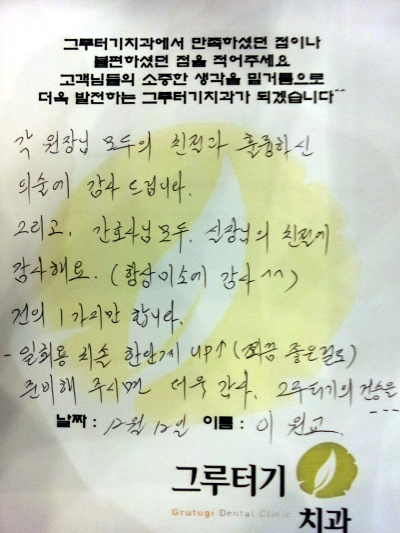 그루터기치과에서 만족하셨던 점이나
불편하셨던 점을 적어주세요
고객님들의 소중한 생각을 밑거름으로
더욱 발전하는 그루터기치과가 되겠습니다^^
각 원장님 모두의 친절과 훌륭하신
의술에 감사 드립니다.
그리고, 간호사님 모두. 실장님의 친절에
감사해요. (항상 미소에 감사 ^^)
건의 1가지만 합니다.
- 일회용 치솔 한단계 up↑ (쬐끔 좋은걸로)
준비해 주시면 더욱 감사. 그루터기의 건승을
---
날짜 : 12월 12일 이름 : 이 원교.
그루터기
Grutugi Dental Clinic
치과